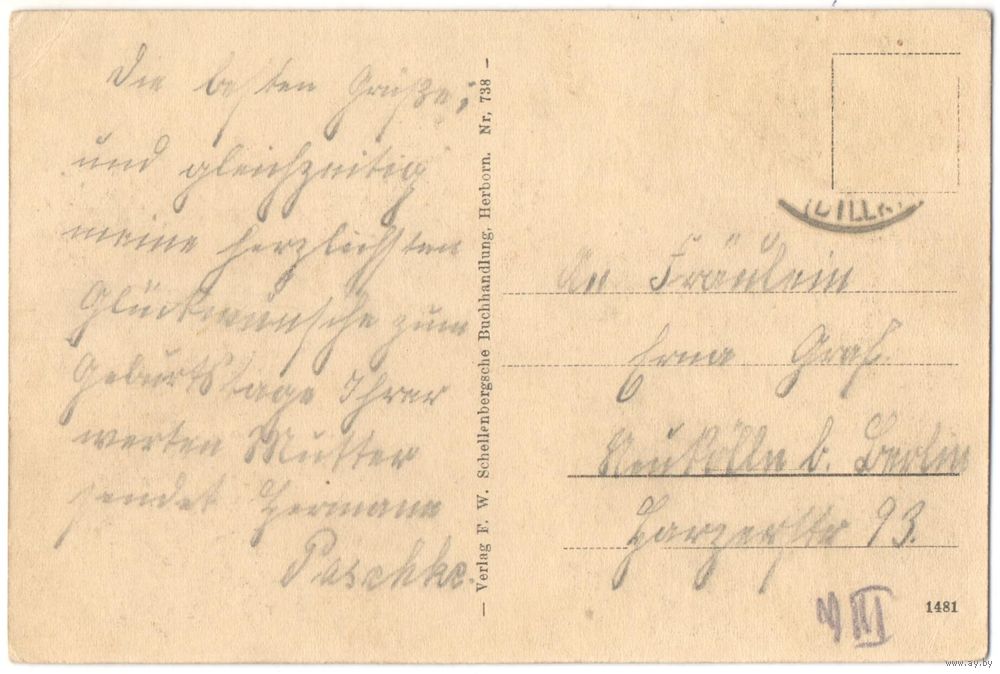 Die besten Grüße,
und gleichzeitig
meine herzlichsten
Glückwünsche zum
Geburtstage Ihrer
werten Mutter
sendet Hermann
Paschke.
— Verlag F. W. Schellenbergsche Buchhandlung, Herborn. Nr, 738 —
(DILLK
An Fräulein
Erna Graf.
Neukölln b. Berlin
Harzerstr 93.
III
1481
www.ay.by